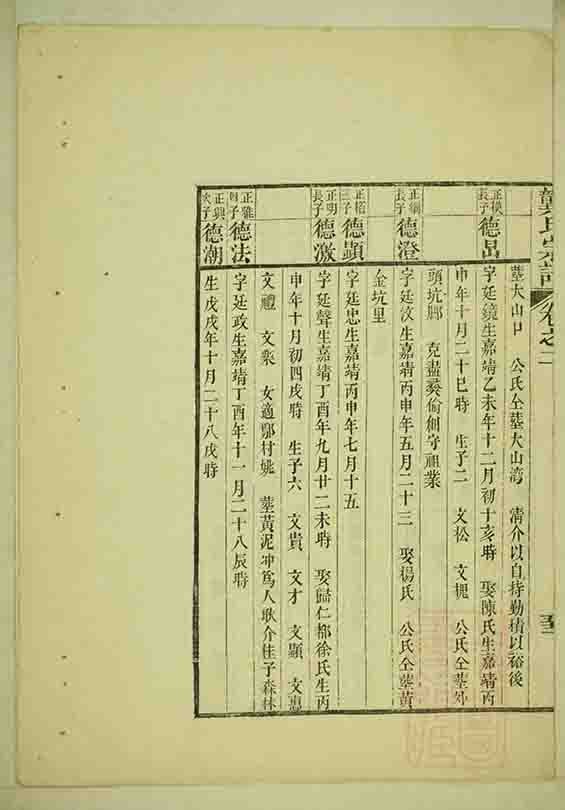 龔氏宗譜 卷之二
葬大山口 公氏仝葬大山湾 清介以自持勤積以裕後
長子 德昌 字廷鏡生嘉靖乙未年十二月初十亥時 娶陳氏生嘉靖丙
申年十月二十巳時 生子二 文松 文槐 公氏仝葬外
頭坑 克盡彛倫創守祖業
正綱長子 德澄 字廷汶生嘉靖丙申年五月二十三 娶楊氏 公氏仝葬黄
金坑里
三子 德顯 字廷忠生嘉靖丙申年七月十五
正明長子 德激 字廷聲生嘉靖丁酉年九月廿二未時 娶歸仁都徐氏生丙
申年十月初四戌時 生子六 文貴 文才 文顯 文惠
文禮 文 女適鄔村姚 葬黄泥冲爲人耿介桂子森林
正雅 子 德法 字廷政生嘉靖丁酉年十一月二十八辰時
正興次子 德潮 生戊戌年十月二十八戌時